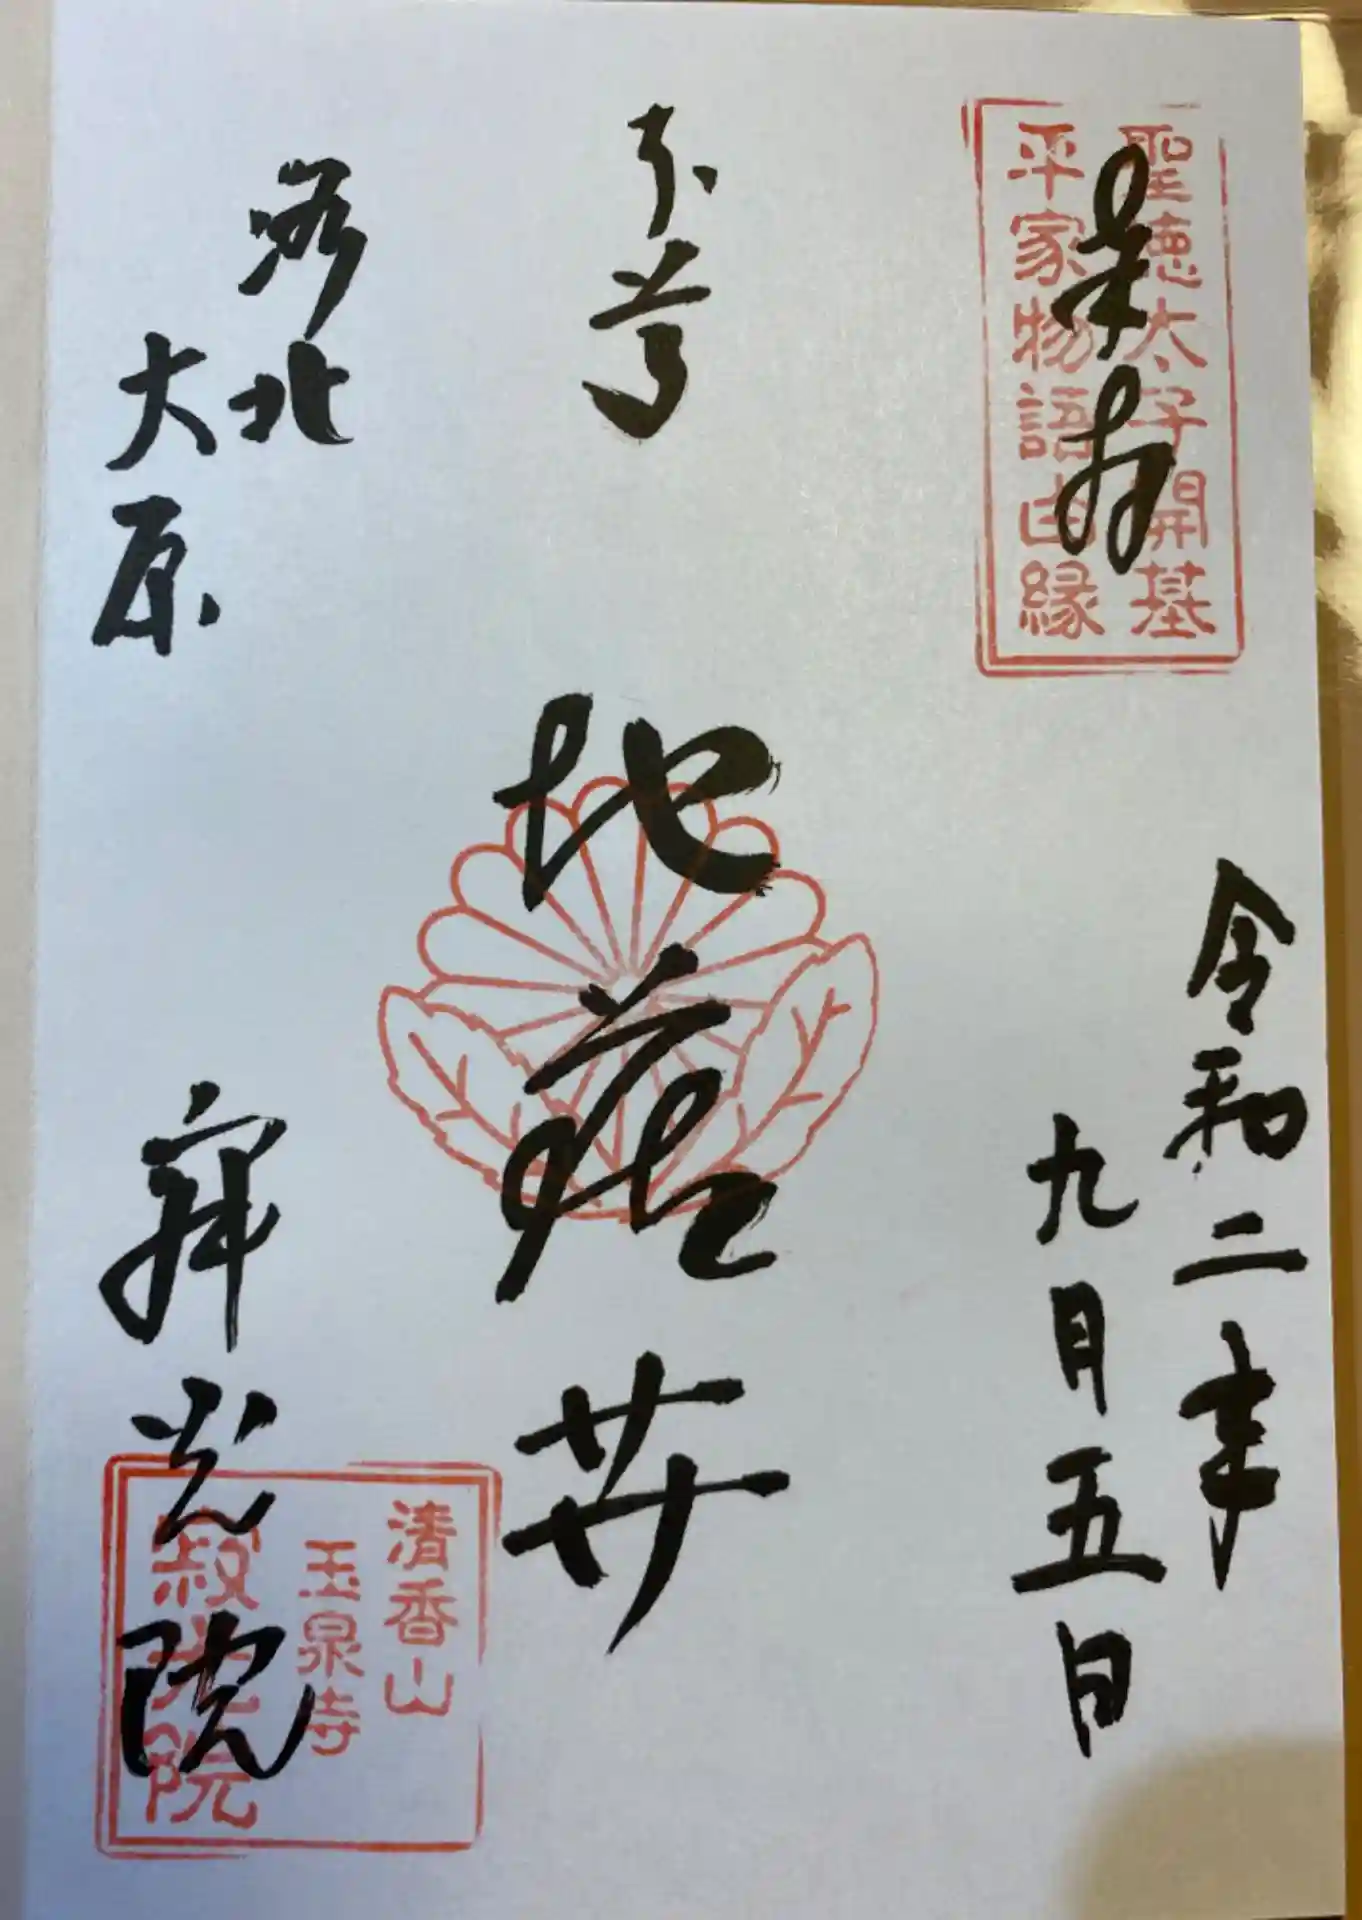 奉拝
聖徳太子開基
平家物語由縁
令和二年
九月五日
本尊
地蔵𦬇
洛北
大原
寂光院
清香山
玉泉寺
寂光院